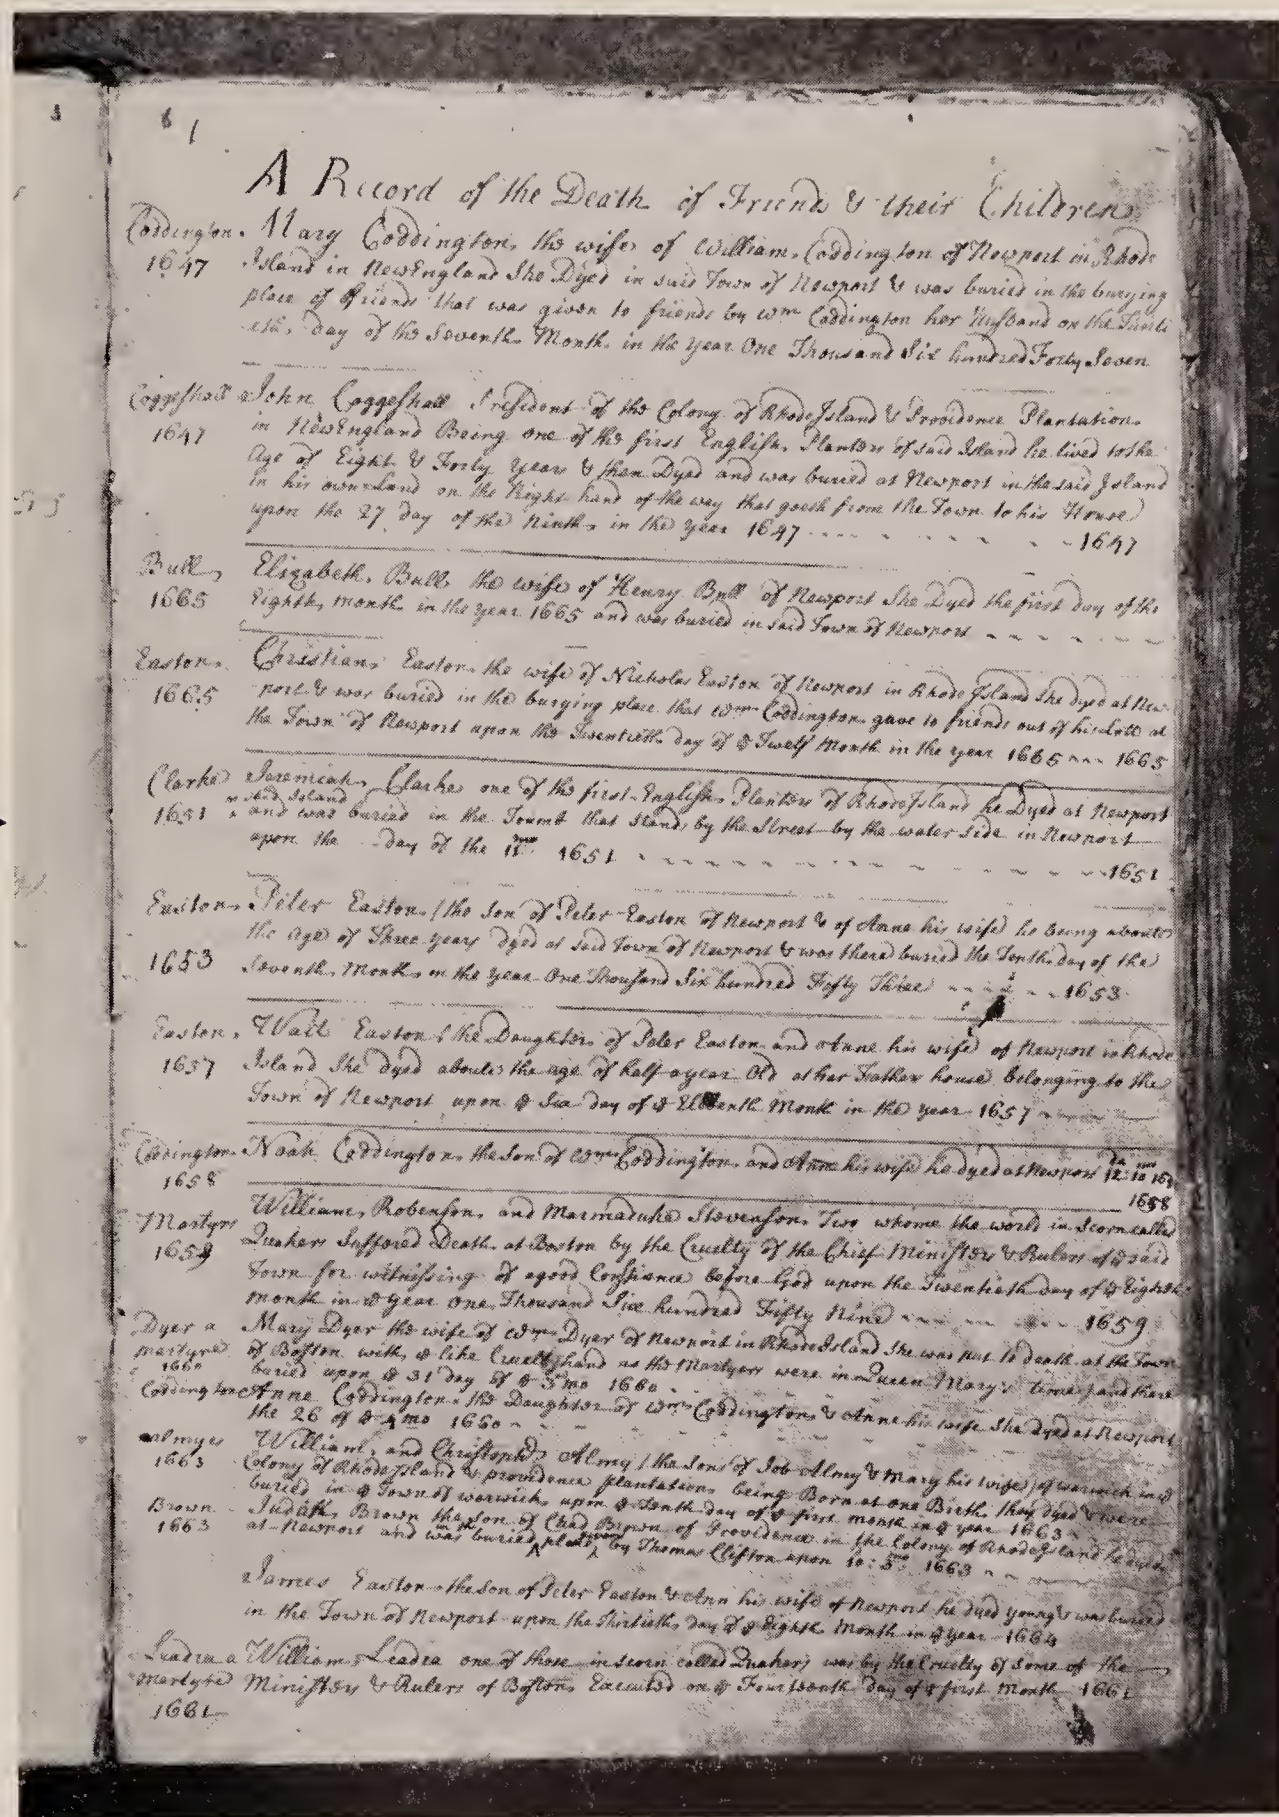 1
A Record of the Death of Friends & their Children
Coddington Mary Coddington the wife of William Coddington of Newport in Rhode
1647 Island in NewEngland She Dyed in said Town of Newport & was buried in the burying
place of friends that was given to friends by Wm Coddington her Husband on the
day of the Seventh Month in the year One Thousand Six hundred Forty Seven
Coggeshall John Coggeshall President of the Colony of Rhode Island & Providence Plantation
1647 in NewEngland Being one of the first English Planters of said Island he lived to the
Age of Eight & Forty years & then Dyed and was buried at Newport in the said Island
in his own Land on the Right hand of the way that goeth from the Town to his House
upon the 27 day of the Ninth in the year 1647 1647
Bull Elizabeth Bull the wife of Henry Bull of Newport She Dyed the first day of the
1665 Eighth month in the year 1665 and was buried in said Town of Newport
Easton Christian Easton the wife of Nicholas Easton of Newport in Rhode Island She dyed at New
1665 port & was buried in the burying place that Wm Coddington gave to friends out of his Lott at
the Town of Newport upon the Twentieth day of ye Twelf Month in the year 1665 1665
Clarke Jeremiah Clarke one of the first English Planters of Rhode Island he Dyed at Newport
said Island
1651 and was buried in the Toumb that stands by the Street by the water side in Newport
upon the day of the 11mo 1651 1651
Easton Peter Easton (the son of Peter Easton of Newport & of Anne his wife he being aboute
the Age of Three years dyed at said Town of Newport & was there buried the Tenth day of the
1653 Seventh Month in the year One Thousand Six hundred Fifty Three 1653
Easton Wait Easton (the Daughter of Peter Easton and Anne his wife of Newport in Rhode
1657 Island She dyed aboute the age of half a year Old at her Father house belonging to the
Town of Newport upon ye Six day of ye Eleventh Month in the year 1657
Coddington Noah Coddington the Son of Wm Coddington and Anne his wife he dyed at Newport
1658 1658
Martyrs William Robenson and Marmaduke Stevenson Two whome the world in Scorn called
1659 Quakers Suffered Death at Boston by the Cruelty of the Chief Ministers & Rulers of ye said
Town for witnessing of a good Consiance before God upon the Twentieth day of ye Eighth
month in ye year One Thousand Six hundred Fifty Nine 1659
Dyer a Mary Dyer the wife of Wm Dyer of Newport in Rhode Island She was put to death at the Town
martyred of Boston with ye like Cruell hand as the Martyers were in Queen Mary's time) and there
1660 buried upon ye 31 day of ye 3 mo 1660
Coddington Anne Coddington the Daughter of Wm Coddington & Anne his wife She dyed at Newport
the 26 of ye 4 mo 1660
Almyes William and Christopher Almy (the Sons of Job Almy & Mary his wife) of warwick in ye
1663 Colony of Rhode Island & providence plantations being Born at one Birth they dyed & were
buried in ye Town of warwick upon ye Tenth day of ye first month in ye year 1663
Brown Judath Brown the Son of Chad Brown of Providence in the Colony of Rhode Island he dyed
1663 at Newport and was buried in the place given by Thomas Clifton upon 10: 5mo 1663
James Easton the Son of Peter Easton & Ann his wife of Newport he dyed young & was buried
in the Town of Newport upon the Thirtieth day of ye Eighth Month in ye year 1664
Leadra a William Leadra one of those in scorn called Quakers was by the Cruelty of Some of the
Martyred Ministers & Rulers of Boston Executed on ye Fourteenth day of ye first Month 1661
1661